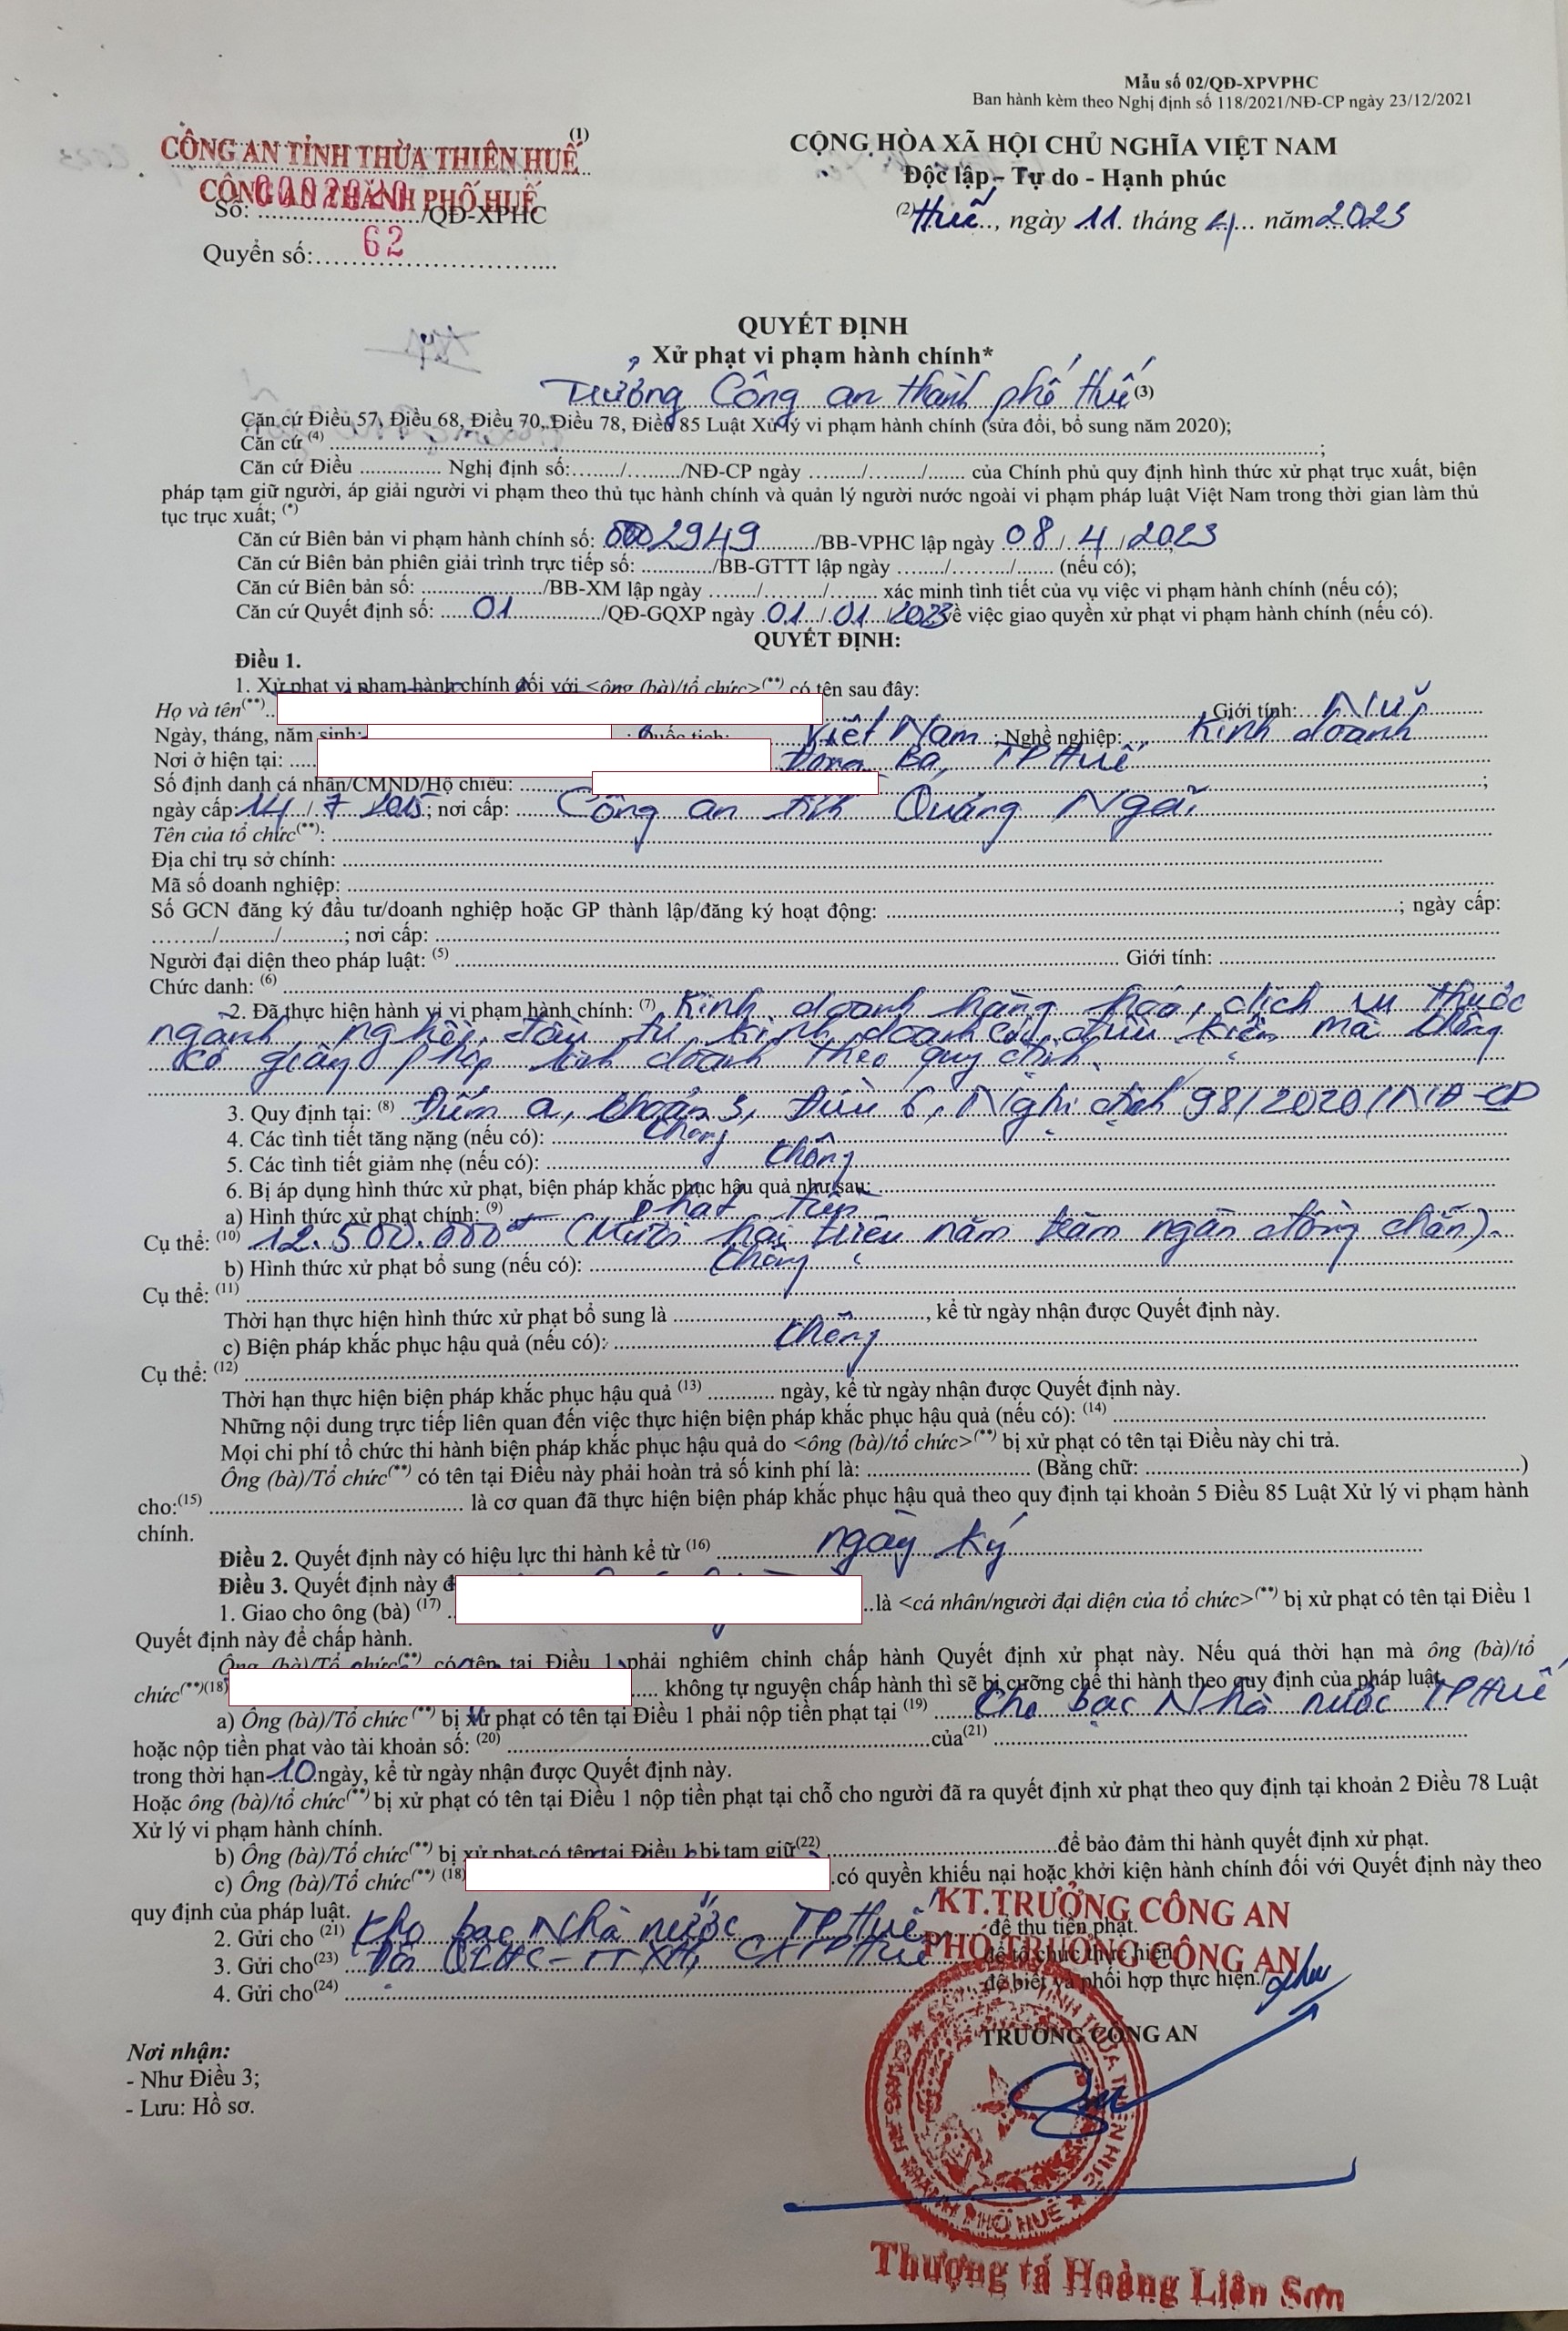 Mẫu số 02/QĐ-XPVPHC
Ban hành kèm theo Nghị định số 118/2021/NĐ-CP ngày 23/12/2021
CÔNG AN TỈNH THỪA THIÊN HUẾ (1)
CÔNG AN THÀNH PHỐ HUẾ
Số: .............../QĐ-XPHC
Quyển số: 62
CỘNG HÒA XÃ HỘI CHỦ NGHĨA VIỆT NAM
Độc lập - Tự do - Hạnh phúc
(2) Huế, ngày 11 tháng 4 năm 2023
QUYẾT ĐỊNH
Xử phạt vi phạm hành chính*
Trưởng Công an thành phố Huế (3)
Căn cứ Điều 57, Điều 68, Điều 70, Điều 78, Điều 85 Luật Xử lý vi phạm hành chính (sửa đổi, bổ sung năm 2020);
Căn cứ (4) ...............;
Căn cứ Điều ............... Nghị định số:......./........./NĐ-CP ngày ......../......./....... của Chính phủ quy định hình thức xử phạt trục xuất, biện
pháp tạm giữ người, áp giải người vi phạm theo thủ tục hành chính và quản lý người nước ngoài vi phạm pháp luật Việt Nam trong thời gian làm thủ
tục trục xuất; (*)
Căn cứ Biên bản vi phạm hành chính số: 0002949 /BB-VPHC lập ngày 08/4/2023
Căn cứ Biên bản phiên giải trình trực tiếp số: ............./BB-GTTT lập ngày ......../........./....... (nếu có);
Căn cứ Biên bản số: ....................../BB-XM lập ngày ......../........./........ xác minh tình tiết của vụ việc vi phạm hành chính (nếu có);
Căn cứ Quyết định số: 01 /QĐ-GQXP ngày 01/01/2023 về việc giao quyền xử phạt vi phạm hành chính (nếu có).
QUYẾT ĐỊNH:
Điều 1.
1. Xử phạt vi phạm hành chính đối với <ông (bà)/tổ chức>(**) có tên sau đây:
Họ và tên(**).. Giới tính: Nữ
Ngày, tháng, năm sinh: ; Quốc tịch: Việt Nam ; Nghề nghiệp: Kinh doanh
Nơi ở hiện tại: ..... Đông Ba, TP Huế
Số định danh cá nhân/CMND/Hộ chiếu: ...............;
ngày cấp: 14/7/2015; nơi cấp: Công an tỉnh Quảng Ngãi
Tên của tổ chức(**): ...............
Địa chỉ trụ sở chính: ...............
Mã số doanh nghiệp: ...............
Số GCN đăng ký đầu tư/doanh nghiệp hoặc GP thành lập/đăng ký hoạt động: ...............; ngày cấp:
........./........../...........; nơi cấp: ...............
Người đại diện theo pháp luật: (5) ............... Giới tính: ...............
Chức danh: (6) ...............
2. Đã thực hiện hành vi vi phạm hành chính: (7) Kinh doanh hàng hoá, dịch vụ thuộc
ngành nghề đầu tư kinh doanh có điều kiện mà không
có giấy phép kinh doanh theo quy định.
3. Quy định tại: (8) Điểm a, khoản 3, Điều 6, Nghị định 98/2020/NĐ-CP
4. Các tình tiết tăng nặng (nếu có): Không
5. Các tình tiết giảm nhẹ (nếu có): Không
6. Bị áp dụng hình thức xử phạt, biện pháp khắc phục hậu quả như sau: ...............
a) Hình thức xử phạt chính: (9) phạt tiền
Cụ thể: (10) 12.500.000đ (Mười hai triệu năm trăm ngàn đồng chẵn).
b) Hình thức xử phạt bổ sung (nếu có): Không
Cụ thể: (11) ...............
Thời hạn thực hiện hình thức xử phạt bổ sung là ..............., kể từ ngày nhận được Quyết định này.
c) Biện pháp khắc phục hậu quả (nếu có): Không
Cụ thể: (12) ...............
Thời hạn thực hiện biện pháp khắc phục hậu quả (13) ............ ngày, kể từ ngày nhận được Quyết định này.
Những nội dung trực tiếp liên quan đến việc thực hiện biện pháp khắc phục hậu quả (nếu có): (14) ...............
Mọi chi phí tổ chức thi hành biện pháp khắc phục hậu quả do <ông (bà)/tổ chức>(**) bị xử phạt có tên tại Điều này chi trả.
Ông (bà)/Tổ chức(**) có tên tại Điều này phải hoàn trả số kinh phí là: ............... (Bằng chữ: ...............)
cho:(15) ............... là cơ quan đã thực hiện biện pháp khắc phục hậu quả theo quy định tại khoản 5 Điều 85 Luật Xử lý vi phạm hành
chính.
Điều 2. Quyết định này có hiệu lực thi hành kể từ (16) ngày ký
Điều 3. Quyết định này đ
1. Giao cho ông (bà) (17) .. ..là <cá nhân/người đại diện của tổ chức>(**) bị xử phạt có tên tại Điều 1
Quyết định này để chấp hành.
Ông (bà)/Tổ chức(**) có tên tại Điều 1 phải nghiêm chỉnh chấp hành Quyết định xử phạt này. Nếu quá thời hạn mà ông (bà)/tổ
chức(**)(18) ..... không tự nguyện chấp hành thì sẽ bị cưỡng chế thi hành theo quy định của pháp luật.
a) Ông (bà)/Tổ chức (**) bị xử phạt có tên tại Điều 1 phải nộp tiền phạt tại (19) Kho bạc Nhà nước TP Huế
hoặc nộp tiền phạt vào tài khoản số: (20) ...............của(21) ...............
trong thời hạn 10 ngày, kể từ ngày nhận được Quyết định này.
Hoặc ông (bà)/tổ chức(**) bị xử phạt có tên tại Điều 1 nộp tiền phạt tại chỗ cho người đã ra quyết định xử phạt theo quy định tại khoản 2 Điều 78 Luật
Xử lý vi phạm hành chính.
b) Ông (bà)/Tổ chức(**) bị xử phạt có tên tại Điều 1 bị tạm giữ(22) ...............để bảo đảm thi hành quyết định xử phạt.
c) Ông (bà)/Tổ chức(**) (18) .có quyền khiếu nại hoặc khởi kiện hành chính đối với Quyết định này theo
quy định của pháp luật.
2. Gửi cho (21) Kho bạc Nhà nước TP Huế để thu tiền phạt.
3. Gửi cho(23) Đội QLHC-TTXH, CATP Huế để tổ chức thực hiện
4. Gửi cho(24) ............... để biết và phối hợp thực hiện./.
KT.TRƯỞNG CÔNG AN
PHÓ TRƯỞNG CÔNG AN
TRƯỞNG CÔNG AN
Nơi nhận:
- Như Điều 3;
- Lưu: Hồ sơ.
Thượng tá Hoàng Liên Sơn